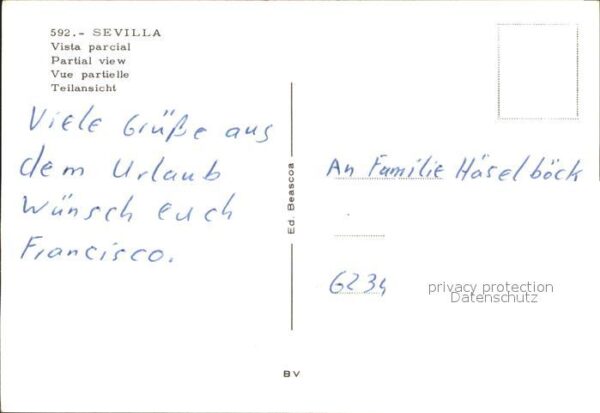 592.- SEVILLA
Vista parcial
Partial view
Vue partielle
Teilansicht
Viele Grüße aus
dem Urlaub
Wünsch euch
Francisco.
Ed. Beascoa
An Familie Häselböck
6234
privacy protection
Datenschutz
BV